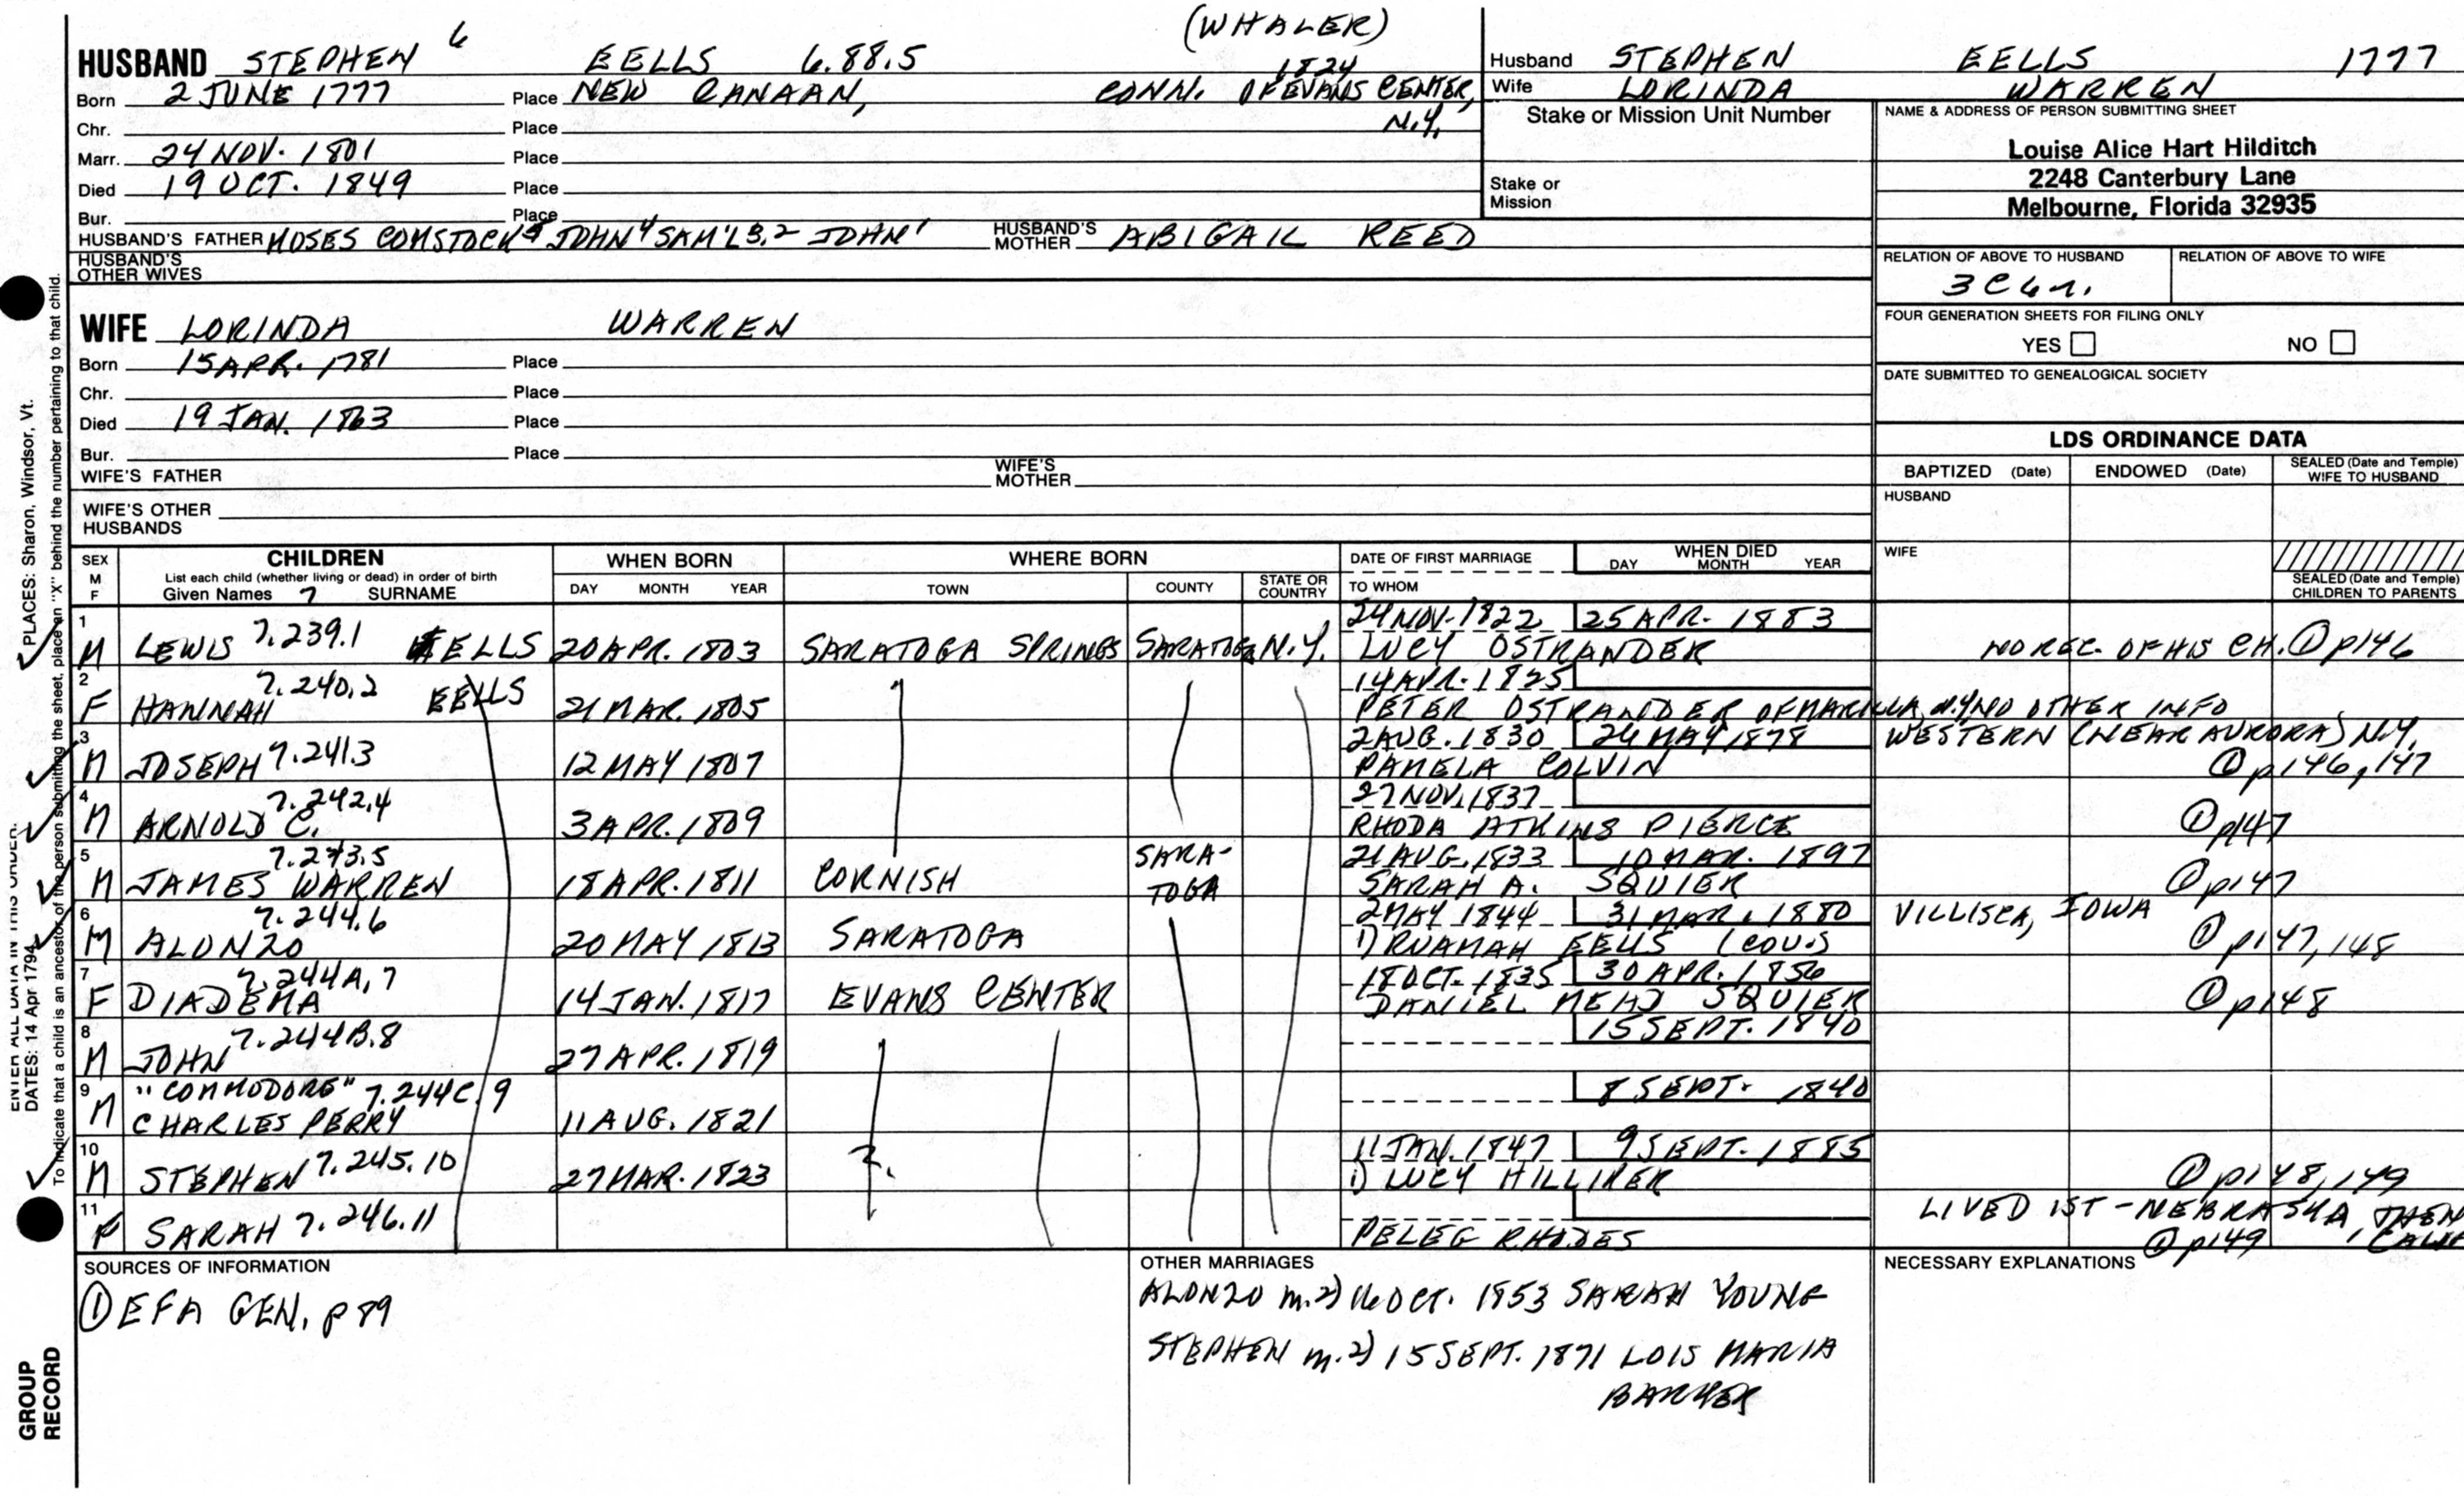 (WHALER)
HUSBAND STEPHEN 6 EELLS 6.88.5 1824
Born 2 JUNE 1777 Place NEW CANAAN, CONN. OF EVANS CENTER, N.Y.
Chr. Place
Marr. 24 NOV. 1801 Place
Died 19 OCT. 1849 Place
Bur. Place
HUSBAND'S FATHER MOSES COMSTOCK5 JOHN4 SAM'L 3,2 JOHN1 HUSBAND'S MOTHER ABIGAIL REED
HUSBAND'S OTHER WIVES
WIFE LORINDA WARREN
Born 15 APR. 1781 Place
Chr. Place
Died 19 JAN. 1863 Place
Bur. Place
WIFE'S FATHER WIFE'S MOTHER
WIFE'S OTHER HUSBANDS
Husband STEPHEN EELLS 1777
Wife LORINDA WARREN
Stake or Mission Unit Number
Stake or Mission
NAME & ADDRESS OF PERSON SUBMITTING SHEET
Louise Alice Hart Hilditch
2248 Canterbury Lane
Melbourne, Florida 32935
RELATION OF ABOVE TO HUSBAND RELATION OF ABOVE TO WIFE
3C4r.
FOUR GENERATION SHEETS FOR FILING ONLY
YES NO
DATE SUBMITTED TO GENEALOGICAL SOCIETY
LDS ORDINANCE DATA
BAPTIZED (Date) ENDOWED (Date) SEALED (Date and Temple) WIFE TO HUSBAND
HUSBAND
WIFE
SEALED (Date and Temple) CHILDREN TO PARENTS
SEX M F CHILDREN WHEN BORN WHERE BORN DATE OF FIRST MARRIAGE WHEN DIED
List each child (whether living or dead) in order of birth DAY MONTH YEAR
Given Names 7 SURNAME DAY MONTH YEAR TOWN COUNTY STATE OR COUNTRY TO WHOM
1 24 NOV. 1822 25 APR. 1883
M LEWIS 7.239.1 EELLS 20 APR. 1803 SARATOGA SPRINGS SARATOGA N.Y. LUCY OSTRANDER NO REC. OF HIS CH. ① p146
2 7.240.2 14 APR. 1825
F HANNAH EELLS 21 MAR. 1805 PETER OSTRANDER OF MARILLA, N.Y. NO OTHER INFO
3 2 AUG. 1830 26 MAY 1878 WESTERN (NEAR AURORA) N.Y.
M JOSEPH 7.241.3 12 MAY 1807 PAMELA COLVIN ① p146, 147
4 7.242.4 27 NOV. 1837
M ARNOLD C. 3 APR. 1809 RHODA ATKINS PIERCE ① p147
5 7.243.5 SARATOGA 21 AUG. 1833 10 MAR. 1897
M JAMES WARREN 18 APR. 1811 CORNISH SARAH A. SQUIER ① p147
6 7.244.6 2 MAY 1844 31 MAR. 1880 VILLISCA, IOWA
M ALONZO 20 MAY 1813 SARATOGA 1) RUAMAH EELLS (COUS ① p147, 148
7 7.244A.7 18 OCT. 1835 30 APR. 1856
F DIADEMA 14 JAN. 1817 EVANS CENTER DANIEL MEAD SQUIER ① p148
8 7.244B.8 15 SEPT. 1840
M JOHN 27 APR. 1819
9 "COMMODORE" 7.244C.9 8 SEPT. 1840
M CHARLES PERRY 11 AUG. 1821
10 11 JAN. 1847 9 SEPT. 1885
M STEPHEN 7.245.10 27 MAR. 1823 ?. 1) LUCY HILLIKER ① p148, 149
11 LIVED 1ST - NEBRASKA, THEN CALIF
F SARAH 7.246.11 PELEG RHODES ① p149
SOURCES OF INFORMATION OTHER MARRIAGES NECESSARY EXPLANATIONS
① EFA GEN. p 89
ALONZO m.2) 16 OCT. 1853 SARAH YOUNG
STEPHEN m.2) 15 SEPT. 1871 LOIS MARIA
BARKER
ENTER ALL DATA IN THIS ORDER:
DATES: 14 Apr 1794 PLACES: Sharon, Windsor, Vt.
To indicate that a child is an ancestor of the person submitting the sheet, place an "X" behind the number pertaining to that child.
GROUP
RECORD